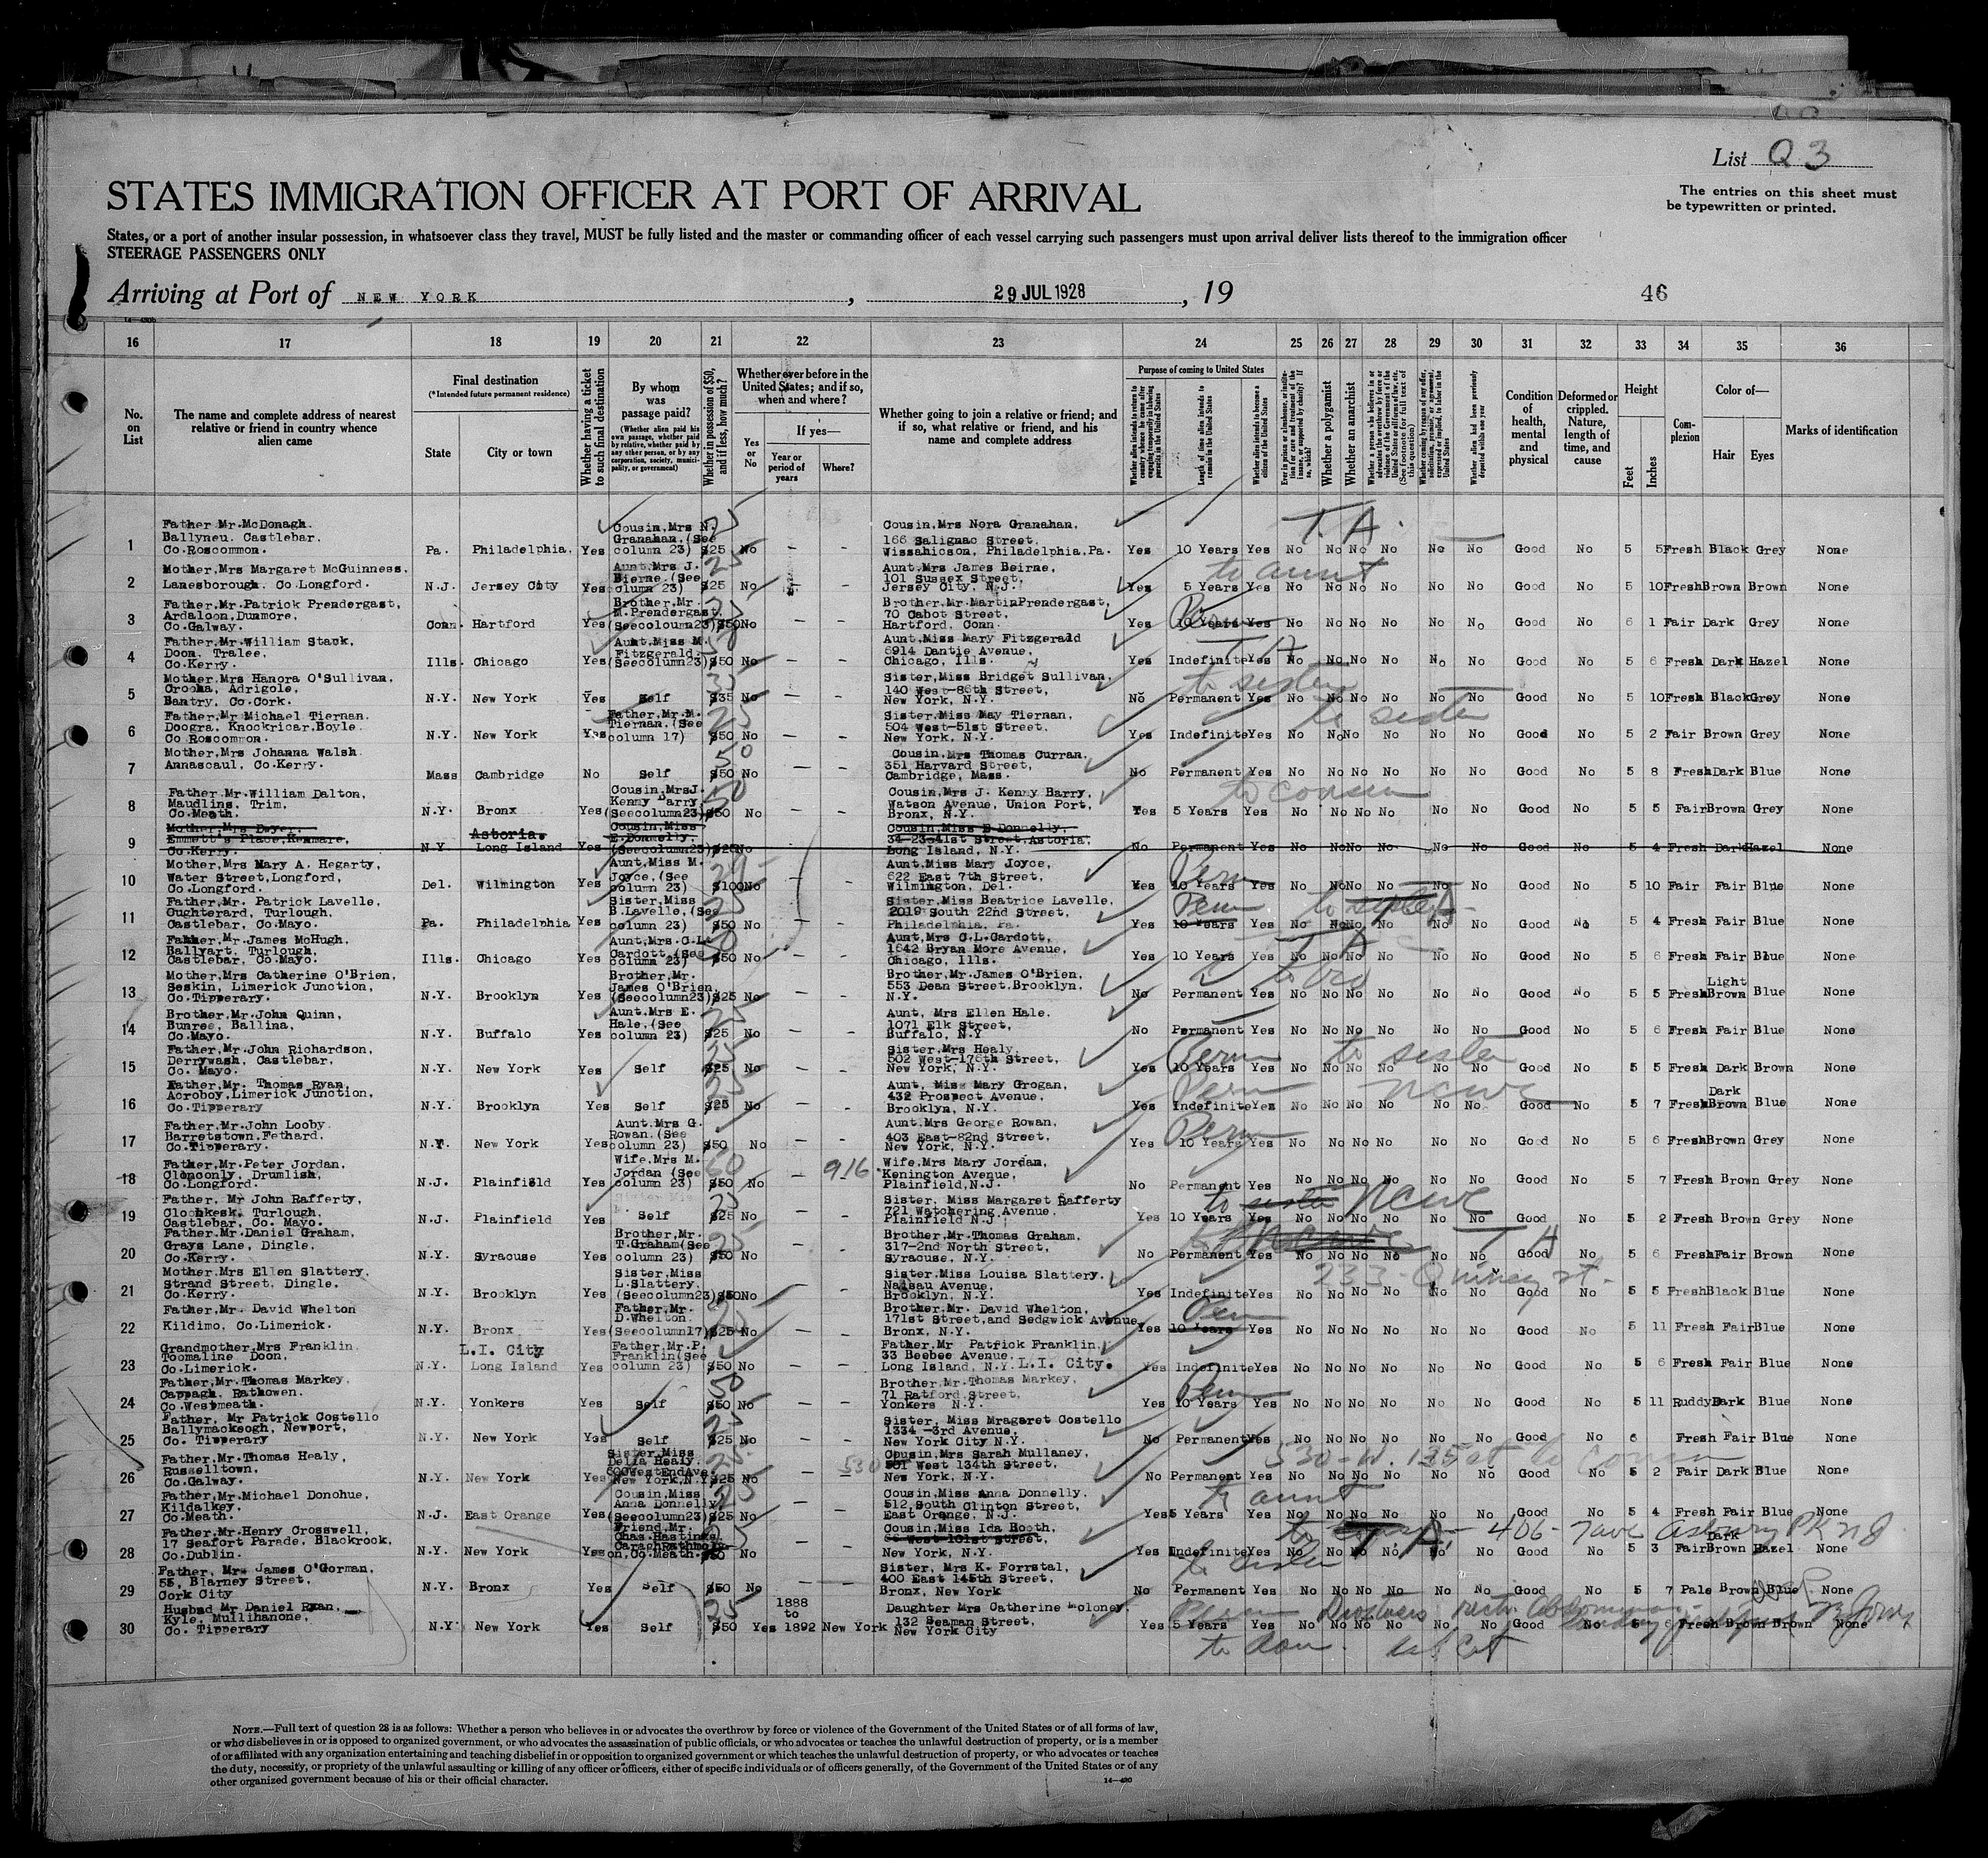 List Q 3
STATES IMMIGRATION OFFICER AT PORT OF ARRIVAL
The entries on this sheet must
be typewritten or printed.
States, or a port of another insular possession, in whatsoever class they travel, MUST be fully listed and the master or commanding officer of each vessel carrying such passengers must upon arrival deliver lists thereof to the immigration officer
STEERAGE PASSENGERS ONLY
Arriving at Port of NEW YORK, 29 JUL 1928, 19
46
16 17 18 19 20 21 22 23 24 25 26 27 28 29 30 31 32 33 34 35 36
No. on List
The name and complete address of nearest relative or friend in country whence alien came
Final destination
(*Intended future permanent residence)
State City or town
Whether having a ticket to such final destination
By whom was passage paid?
(Whether alien paid his own passage, whether paid by relative, whether paid by any other person, or by any corporation, society, municipality, or government)
Whether in possession of $50, and if less, how much?
Whether ever before in the United States; and if so, when and where?
Yes or No
If yes—
Year or period of years
Where?
Whether going to join a relative or friend; and if so, what relative or friend, and his name and complete address
Purpose of coming to United States
Length of time alien intends to remain in the United States
Whether alien intends to become a citizen of the United States
Whether a polygamist
Whether an anarchist
Condition of health, mental and physical
Deformed or crippled. Nature, length of time, and cause
Height
Feet Inches
Complexion
Color of—
Hair Eyes
Marks of identification
1 Father Mr.McDonagh. Ballyneu. Castlebar, Co.Roscommon. Pa. Philadelphia. Yes Cousin,Mrs N. Granahan,(See column 23) $25 No - - Cousin,Mrs Nora Granahan, 166 Salignac Street, Wissahicson, Philadelphia,Pa. Yes 10 Years Yes No No No No No No Good No 5 5 Fresh Black Grey None
T.A.
2 Mother,Mrs Margaret McGuinness. Lanesborough. Co Longford. N.J. Jersey City Yes Aunt,Mrs J. Bierne.(See column 23) $25 No - - Aunt.Mrs James Beirne, 101 Sussex Street, Jersey City, N.J. Yes 5 Years Yes No No No No No No Good No 5 10 Fresh Brown Brown None
to aunt
3 Father,Mr.Patrick Prendergast, Ardaloon,Dunmore, Co.Galway. Conn. Hartford Yes Brother,Mr. M.Prendergast. (Seecoloumn23) $50 No - - Brother,Mr.MartinPrendergast, 70 Cabot Street, Hartford, Conn. Yes 10 Years Yes No No No No No No Good No 6 1 Fair Dark Grey None
4 Father,Mr.William Stack, Doon, Tralee, Co.Kerry. Ills. Chicago Yes Aunt.Miss M. Fitzgerald. (Seecolumn23) $50 No - - Aunt,Miss Mary Fitzgerald 6914 Dantie Avenue, Chicago, Ills. Yes Indefinite Yes No No No No No No Good No 5 6 Fresh Dark Hazel None
T A
5 Mother.Mrs Hanora O'Sullivan. Crooha, Adrigole, Bantry, Co.Cork. N.Y. New York Yes Self $35 No - - Sister,Miss Bridget Sullivan, 140 West-86th Street, New York, N.Y. No Permanent Yes No No No No No No Good No 5 10 Fresh Black Grey None
to sister
6 Father,Mr Michael Tiernan. Doogra, Knockricar,Boyle. Co Roscommon. N.Y. New York Yes Father,Mr.M. Tiernan.(See column 17) $50 No - - Sister,Miss May Tiernan, 504 West-51st Street, New York, N.Y. Yes Indefinite Yes No No No No No No Good No 5 2 Fair Brown Grey None
to sister
7 Mother,Mrs Johanna Walsh. Annascaul, Co.Kerry. Mass Cambridge No Self $50 No - - Cousin,Mrs Thomas Curran. 351 Harvard Street, Cambridge, Mass. No Permanent Yes No No No No No No Good No 5 8 Fresh Dark Blue None
8 Father,Mr.William Dalton, Maudlins, Trim, Co.Meath. N.Y. Bronx Yes Cousin,MrsJ. Kenny Barry, (Seecolumn23) $50 No - - Cousin,Mrs J. Kenny Barry, Watson Avenue, Union Port, Bronx, N.Y. Yes 5 Years Yes No No No No No No Good No 5 5 Fair Brown Grey None
to cousin
9 Mother,Mrs Dwyer, Emmett's Place,Kenmare, Co.Kerry. N.Y. Astoria. Long Island Yes Cousin,Miss E.Donnelly, (Seecolumn23) $25 No Cousin,Miss E Donnelly, 34-23-41st Street,Astoria, Long Island, N.Y. No Permanent Yes No No No No No No Good No 5 4 Fresh Dark Hazel None
10 Mother,Mrs Mary A. Hegarty, Water Street,Longford, Co.Longford. Del. Wilmington Yes Aunt,Miss M. Joyce,(See column 23) $100 No - - Aunt.Miss Mary Joyce, 622 East 7th Street, Wilmington, Del. Yes 10 Years Yes No No No No No No Good No 5 10 Fair Fair Blue None
Perm
11 Father,Mr. Patrick Lavelle, Oughterard, Turlough, Castlebar, Co.Mayo. Pa. Philadelphia Yes Sister,Miss B.Lavelle,(See column 23) $50 No - - Sister,Miss Beatrice Lavelle, 2019 South 22nd Street, Philadelphia, Pa. Yes 10 Years Yes No No No No No No Good No 5 4 Fresh Fair Blue None
Perm
12 Father,Mr.James McHugh, Ballyart, Turlough, Castlebar, Co.Mayo. Ills. Chicago Yes Aunt,Mrs.C.L. Cardott,(See column 23) $50 No - - Aunt,Mrs C.L.Cardott, 1642 Bryan More Avenue, Chicago, Ills. Yes 10 Years Yes No No No No No No Good No 5 6 Fresh Fair Blue None
T A
13 Mother,Mrs Catherine O'Brien, Seskin, Limerick Junction, Co.Tipperary. N.Y. Brooklyn Yes Brother,Mr. James O'Brien, (Seecolumn23) $25 No - - Brother,Mr.James O'Brien, 553 Dean Street,Brooklyn, N.Y. No Permanent Yes No No No No No No Good No 5 5 Fresh Light Brown Blue None
to bro
14 Brother,Mr.John Quinn, Bunree, Ballina, Co.Mayo. N.Y. Buffalo Yes Aunt.Mrs E. Hale,(See column 23) $25 No - - Aunt, Mrs Ellen Hale. 1071 Elk Street, Buffalo, N.Y No Permanent Yes No No No No No No Good No 5 6 Fresh Fair Blue None
15 Father,Mr.John Richardson, Derrywash, Castlebar, Co. Mayo. N.Y. New York Yes Self $25 No - - Sister,Mrs Healy, 502 West-176th Street, New York, N.Y. Yes 10 Years Yes No No No No No No Good No 5 5 Fresh Dark Brown None
Perm to sister
16 Father,Mr. Thomas Ryan, Acroboy,Limerick Junction, Co.Tipperary N.Y. Brooklyn Yes Self $25 No - - Aunt, Miss Mary Grogan, 432 Prospect Avenue, Brooklyn, N.Y. Yes Indefinite Yes No No No No No No Good No 5 7 Fresh Dark Brown Blue None
Perm NCWC
17 Father,Mr.John Looby. Barretstown,Fethard. Co.Tipperary. N.Y. New York Yes Aunt.Mrs G. Rowan.(See column 23) $50 No - - Aunt.Mrs George Rowan, 403 East-82nd Street, New York, N.Y. Yes 10 Years Yes No No No No No No Good No 5 6 Fresh Brown Grey None
Perm
18 Father,Mr.Peter Jordan, Cloncoonly, Drumlish, Co.Longford. N.J. Plainfield Yes Wife,Mrs M. Jordan (See column 23) $50 No - 916 Wife,Mrs Mary Jordan, Kenington Avenue, Plainfield,N.J. No Permanent Yes No No No No No No Good No 5 7 Fresh Brown Grey None
19 Father, Mr John Rafferty, Cloonkesk, Turlough, Castlebar, Co. Mayo. N.J. Plainfield Yes Self $25 No - - Sister, Miss Margaret Rafferty 721 Watchering Avenue, Plainfield N.J. Yes 10 Years Yes No No No No No No Good No 5 2 Fresh Brown Grey None
to sister NCWC
20 Father.Mr.Daniel Graham, Grays Lane, Dingle, Co.Kerry. N.Y. Syracuse Yes Brother,Mr. T.Graham(See column 23) $50 No - - Brother,Mr.Thomas Graham, 317-2nd North Street, Syracuse, N.Y. No Permanent Yes No No No No No No Good No 5 6 Fresh Fair Brown None
T A
21 Mother.Mrs Ellen Slattery. Strand Street, Dingle. Co.Kerry. N.Y. Brooklyn Yes Sister,Miss L.Slattery. (Seecolumn23) $50 No - - Sister,Miss Louisa Slattery. Nassau Avenue, Brooklyn, N.Y. Yes Indefinite Yes No No No No No No Good No 5 5 Fresh Black Blue None
233-Quincy st-
22 Father,Mr. David Whelton Kildimo, Co.Limerick. N.Y. Bronx Yes Father,Mr. D.Whelton. (Seecolumn17) $25 No - - Brother,Mr. David Whelton, 171st Street,and Sedgwick Avenue, Bronx, N.Y. Yes 10 Years Yes No No No No No No Good No 5 11 Fresh Fair Blue None
Perm
23 Grandmother,Mrs Franklin. Toomaline Doon, Co.Limerick. N.Y. L.I. City Long Island Yes Father,Mr.P. Franklin(See column 23) $50 No - - Father,Mr Patrick Franklin, 33 Beebee Avenue. Long Island, N.Y. L.I. City. Yes Indefinite Yes No No No No No No Good No 5 6 Fresh Fair Blue None
24 Father,Mr.Thomas Markey, Cappagh, Rathowen. Co.Westmeath. N.Y. Yonkers Yes Self $50 No - - Brother,Mr.Thomas Markey, 71 Ratford Street, Yonkers N.Y. Yes 10 Years Yes No No No No No No Good No 5 11 Ruddy Dark Blue None
Perm
25 Father, Mr Patrick Costello Ballymackeogh, Newport, Co. Tipperary N.Y. New York Yes Self $25 No - - Sister, Miss Mragaret Costello 1334 -3rd Avenue, New York City N.Y. No Permanent Yes No No No No No No Good No 6 Fresh Fair Blue None
26 Father,Mr.Thomas Healy, Russelltown, Co.Galway. N.Y. New York Yes Sister,Miss Delia Healy. 600WestEndAve. New York,N.Y. $25 No - 530 Cousin,Mrs Sarah Mullaney, 501 West 134th Street, New York, N.Y. No Permanent Yes No No No No No No Good No 5 2 Fair Dark Blue None
530-W. 135 st to cousin
27 Father,Mr.Michael Donohue, Kildalkey. Co.Meath. N.J. East Orange Yes Cousin,Miss Anna Donnelly (Seecolumn23) $25 No - - Cousin,Miss Anna Donnelly. 512 South Clinton Street, East Orange, N.J. Yes 5 Years Yes No No No No No No Good No 5 4 Fresh Fair Blue None
to aunt
28 Father,Mr.Henry Crosswell, 17 Seafort Parade, Blackrock, Co.Dublin. N.Y. New York Yes Friend,Mr. Chas.Hastings, on,Co.Meath. $50 No - - Cousin,Miss Ida Booth, West-101st Street, New York, N.Y. Yes Indefinite Yes No No No No No No Good No 5 3 Fair Dark Brown Hazel None
T.A. 406-7 ave Asbury Pk NJ
29 Father, Mr. James O'Gorman. 55, Blarney Street, Cork City N.Y. Bronx Yes Self $50 No - - Sister, Mrs K. Forrstal, 400 East 145th Street, Bronx, New York No Permanent Yes No No No No No No Good No 5 7 Pale Brown Blue None
to sister
30 Husbad Mr.Daniel Ryan, Kyle, Mullihanone, Co. Tipperary N.Y. New York Yes Self $50 Yes 1888 to 1892 New York Daughter Mrs Catherine Moloney, 132 Seaman Street, New York City Yes 5 Years Yes No No No No No No Good 5 6 Fresh Brown Brown None
NOTE.—Full text of question 28 is as follows: Whether a person who believes in or advocates the overthrow by force or violence of the Government of the United States or of all forms of law,
or who disbelieves in or is opposed to organized government, or who advocates the assassination of public officials, or who advocates or teaches the unlawful destruction of property, or is a member
of or affiliated with any organization entertaining and teaching disbelief in or opposition to organized government or which teaches the unlawful destruction of property, or who advocates or teaches
the duty, necessity, or propriety of the unlawful assaulting or killing of any officer or officers, either of specific individuals or of officers generally, of the Government of the United States or of any
other organized government because of his or their official character.
14—430